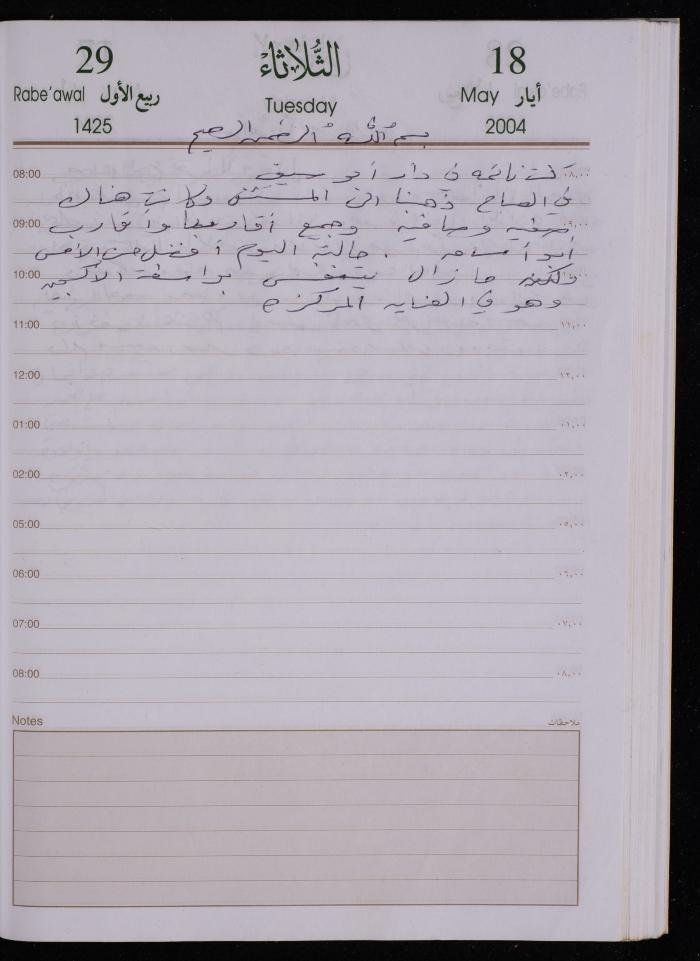 29 الثُّلاثاءْ 18
Rabe'awal ربيع الأول Tuesday May أيار
1425 2004
بسم الله الرحمن الرحيم
08:00 كنت نائمه في دار أبو ٠٨,٠٠
في الصباح ذهبنا الى المستشفى وكانت هناك
09:00 صفيه وصافيه وجميع أقاربها وأقارب ٠٩,٠٠
أبو أسامه . حالته اليوم أفضل من الأمس
10:00 ولكنه ما زال يتنفس بواسطة الأكسجين ١٠,٠٠
وهو في العنايه المركزه
11:00 ١١,٠٠
12:00 ١٢,٠٠
01:00 ٠١,٠٠
02:00 ٠٢,٠٠
05:00 ٠٥,٠٠
06:00 ٠٦,٠٠
07:00 ٠٧,٠٠
08:00 ٠٨,٠٠
Notes ملاحظات